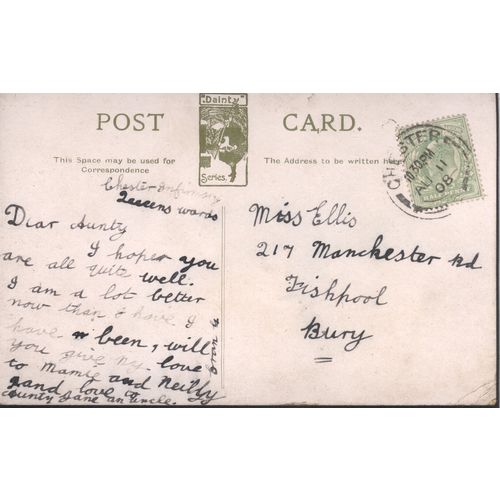 "Dainty"
Series.
POST CARD.
This Space may be used for
Correspondence
The Address to be written here
CHESTER
10.30PM
AU 11
08
Chester Infirmary
Queens wards
Dear Aunty
I hope you
are all quite well.
I am a lot better
now than I have I
have been, will
you give my love
to Mamie and Neilly
and love to
Aunty Jane an uncle.
Miss Ellis
217 Manchester Rd
Fishpool
Bury